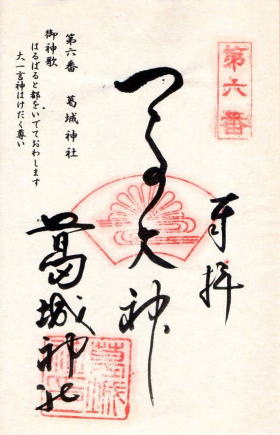 第六番
奉拝
一言大神
葛城神社
葛城神社
第六番 葛城神社
御神歌
はるばると都をいでておわします
大一言神はけだく尊い